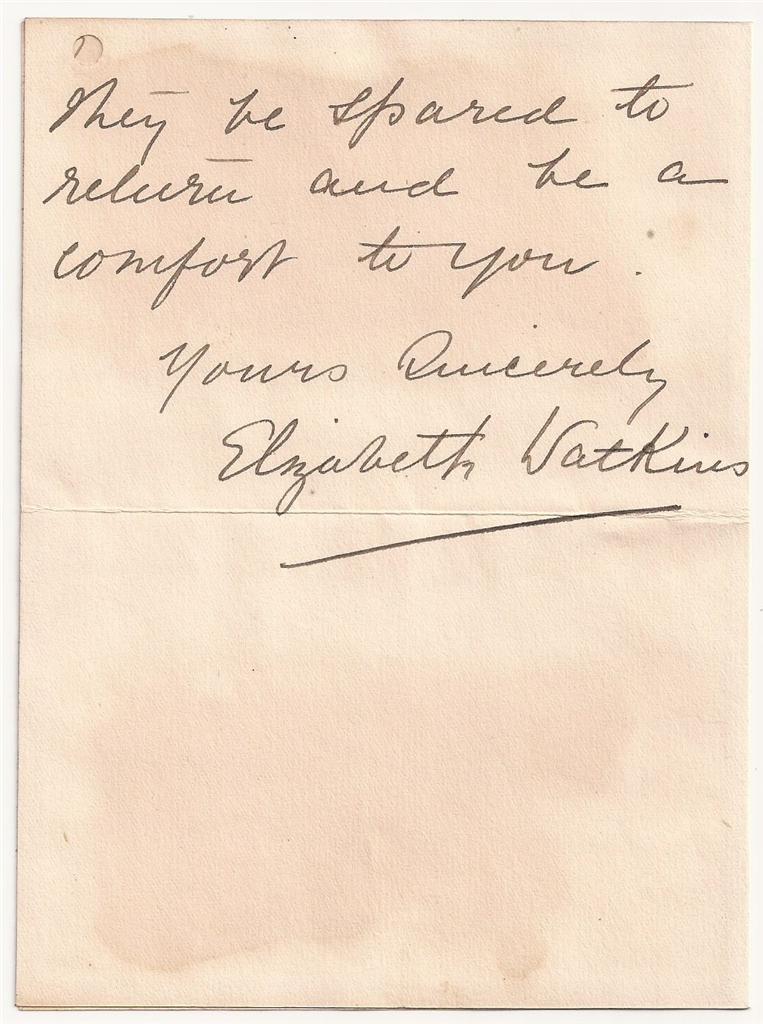 they be spared to
return and be a
comfort to you.
Yours Sincerely
Elizabeth Watkins